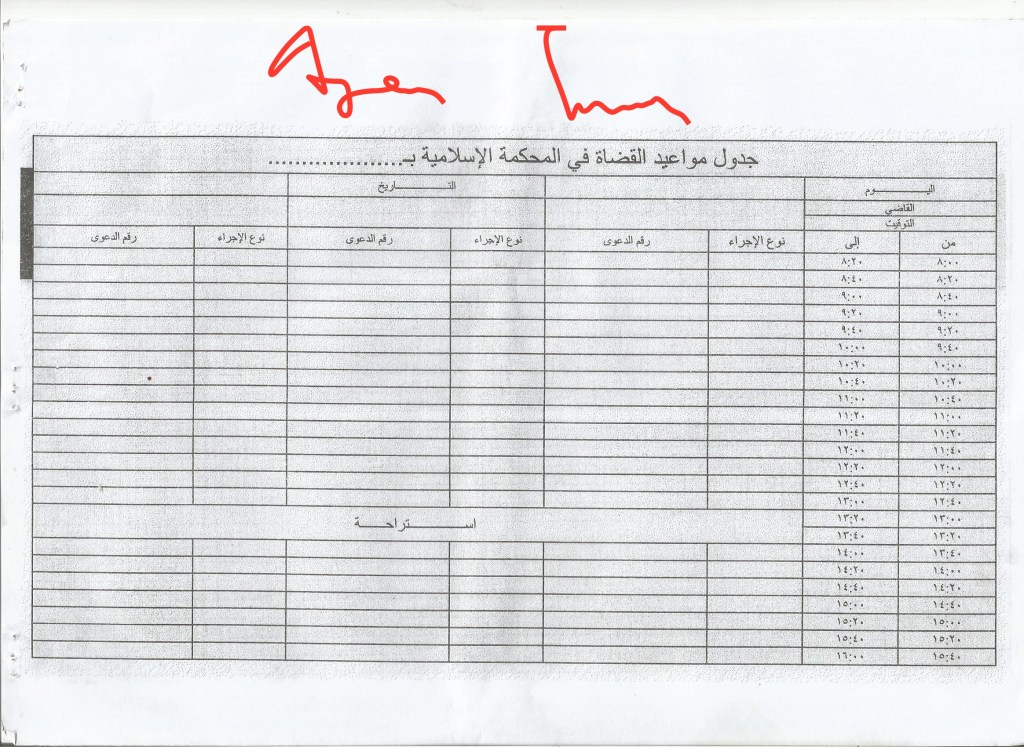 جدول مواعيد القضاة في المحكمة الإسلامية بـ....................
اليـــــــوم التـــــــاريخ
القاضي
التوقيت
من إلى نوع الإجراء رقم الدعوى نوع الإجراء رقم الدعوى نوع الإجراء رقم الدعوى
٨:٠٠ ٨:٢٠
٨:٢٠ ٨:٤٠
٨:٤٠ ٩:٠٠
٩:٠٠ ٩:٢٠
٩:٢٠ ٩:٤٠
٩:٤٠ ١٠:٠٠
١٠:٠٠ ١٠:٢٠
١٠:٢٠ ١٠:٤٠
١٠:٤٠ ١١:٠٠
١١:٠٠ ١١:٢٠
١١:٢٠ ١١:٤٠
١١:٤٠ ١٢:٠٠
١٢:٠٠ ١٢:٢٠
١٢:٢٠ ١٢:٤٠
١٢:٤٠ ١٣:٠٠
١٣:٠٠ ١٣:٢٠ اســـتراحـــة
١٣:٢٠ ١٣:٤٠
١٣:٤٠ ١٤:٠٠
١٤:٠٠ ١٤:٢٠
١٤:٢٠ ١٤:٤٠
١٤:٤٠ ١٥:٠٠
١٥:٠٠ ١٥:٢٠
١٥:٢٠ ١٥:٤٠
١٥:٤٠ ١٦:٠٠